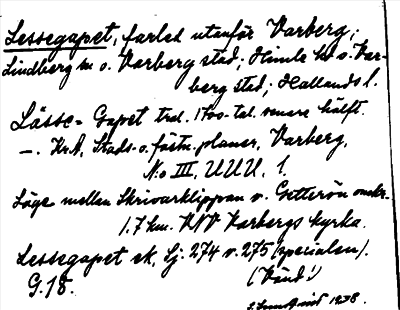 Lessegapet, farled utanför Varberg,;
Lindberg sn o. Varberg stad; Himle hd o. Var-
berg stad; Hallands l.
Lässe-Gapet trol. 1700-tal. senare hälft.
–. Kr.A, Stads- o. fästn. planer, Varberg,
No III, UUU, 1.
Läge mellan Skrivarklippan o. Getterön omkr.
1.7 km. VNV Varbergs kyrka.
Lessegapet ek. Sj. 274 o. 275 (specialen).
G.18. (Vänd!)
1938.